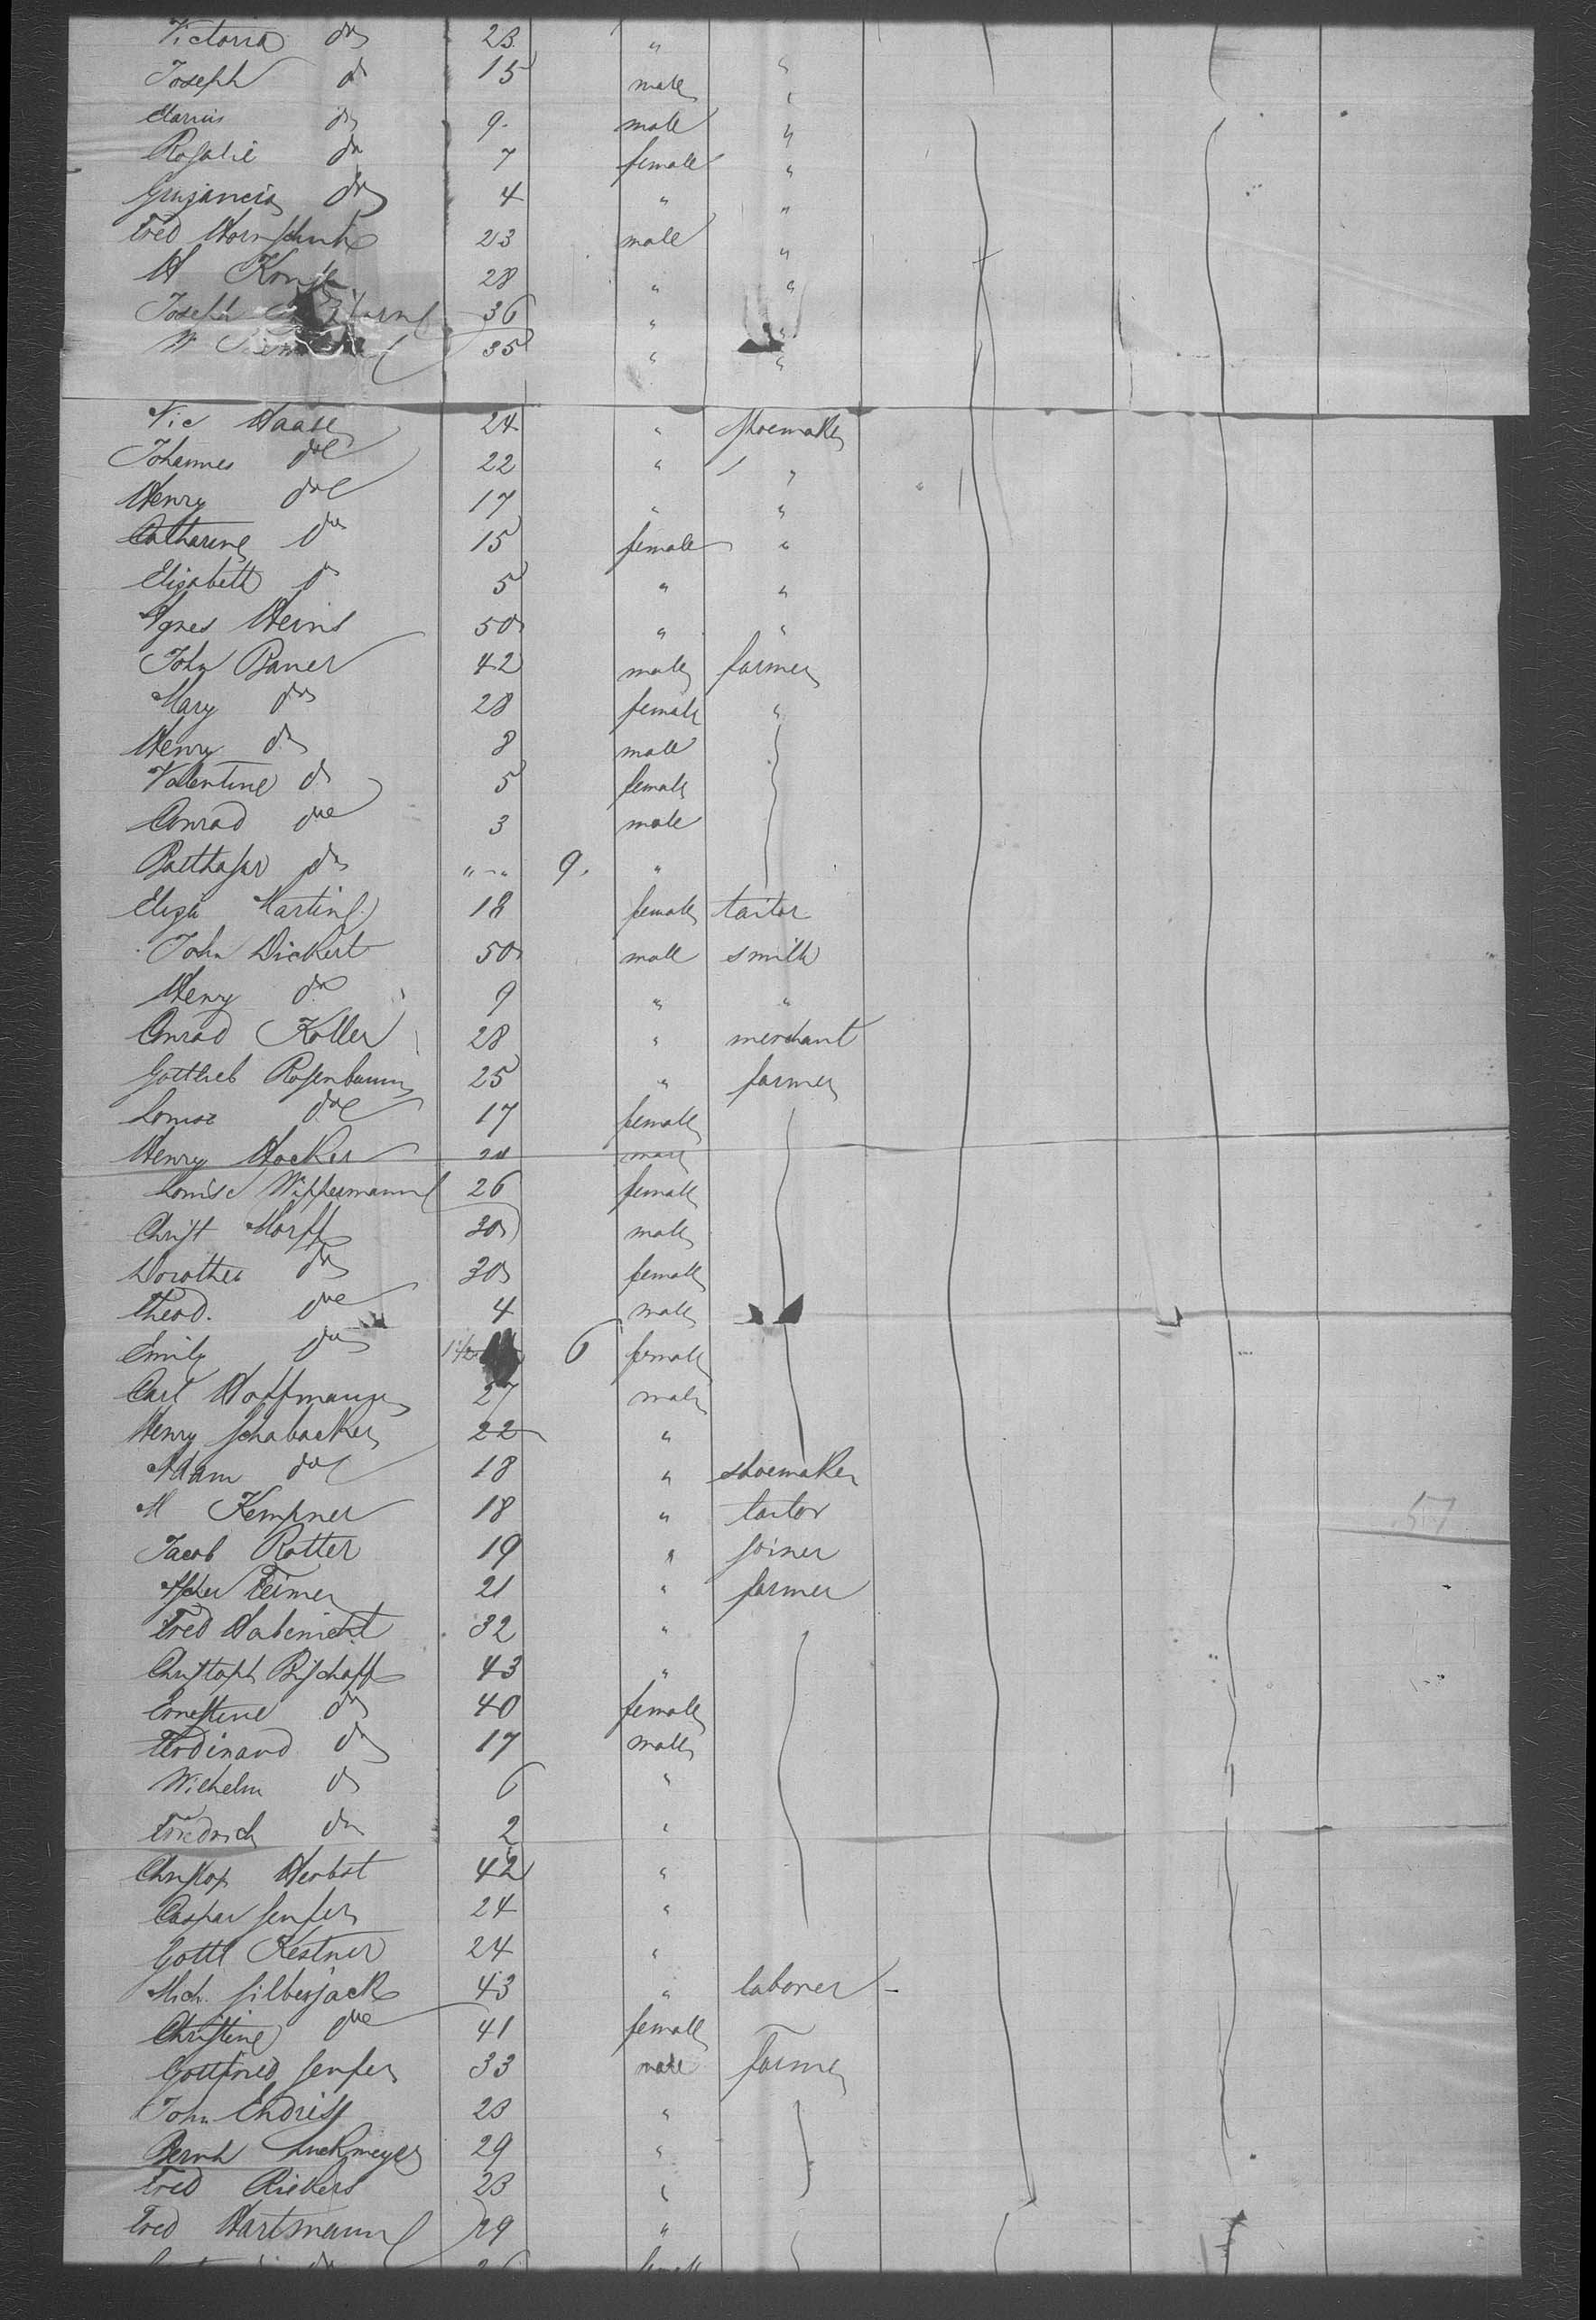 Victoria do 23 "
Joseph do 15 male "
Marius do 9 male "
Rosalie do 7 female "
do 4 " "
Fred Hornschuh 23 male "
H 28 " "
Joseph 36 " "
W 35 " "
Nic Haase 24 " shoemaker
Johannes do 22 " "
Henry do 17 " "
Catharine do 15 female "
Elisabeth do 5 " "
Agnes Heins 50 " "
John Bauer 42 male farmer
Mary do 28 female "
Henry do 8 male
Valentine do 5 female
Conrad do 3 male
Balthasar do "-" 9. "
Eliza Martin 18 female tailor
John Dickert 50 male smith
Henry do 9 " "
Conrad Koller 28 " merchant
Gottlieb Rosenbaum 25 " farmer
Louise do 17 female
Henry Hocker male
Louise Wippermann 26 female
Christ Morff 30 male
Dorothea do 30 female
Theod. do 4 male
Emily do 6 female
Carl Hoffmann 27 male
Henry Schabacker 22 "
Adam do 18 " shoemaker
M Kempner 18 " tailor
Jacob Rotter 19 " joiner
21 " farmer
Fred Habenicht 32 "
Christoph Bischoff 43 "
Ernestine do 40 female
Ferdinand do 17 male
Wilhelm do 6 "
Friedrich do 2 "
Christop Herbst 42 "
Caspar Senfer 24 "
Gottl Kestner 24 "
Mich. Silbersack 43 " laborer
Christine do 41 female
Gottfried Senfer 33 male farmer
John Endriss 23 "
Bernh Luckmeyer 29 "
Fred Riekers 23 "
Fred Hartmann 29 "
do 26 female